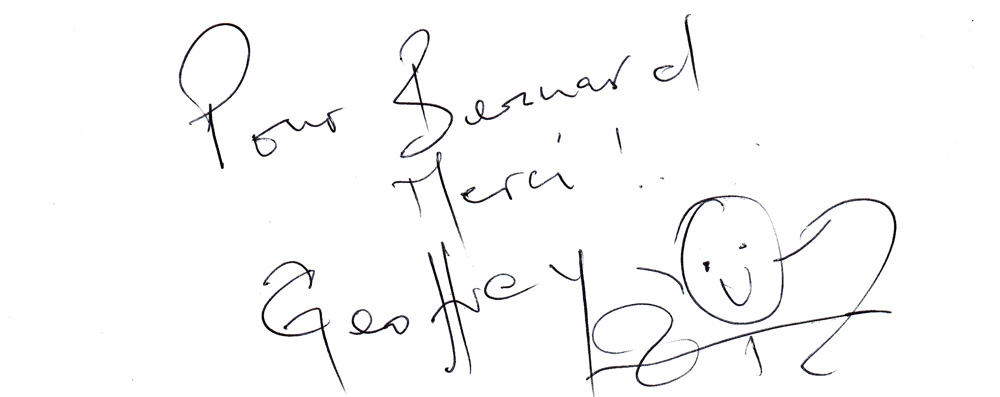 Pour Bernard
Merci !
Geoffrey